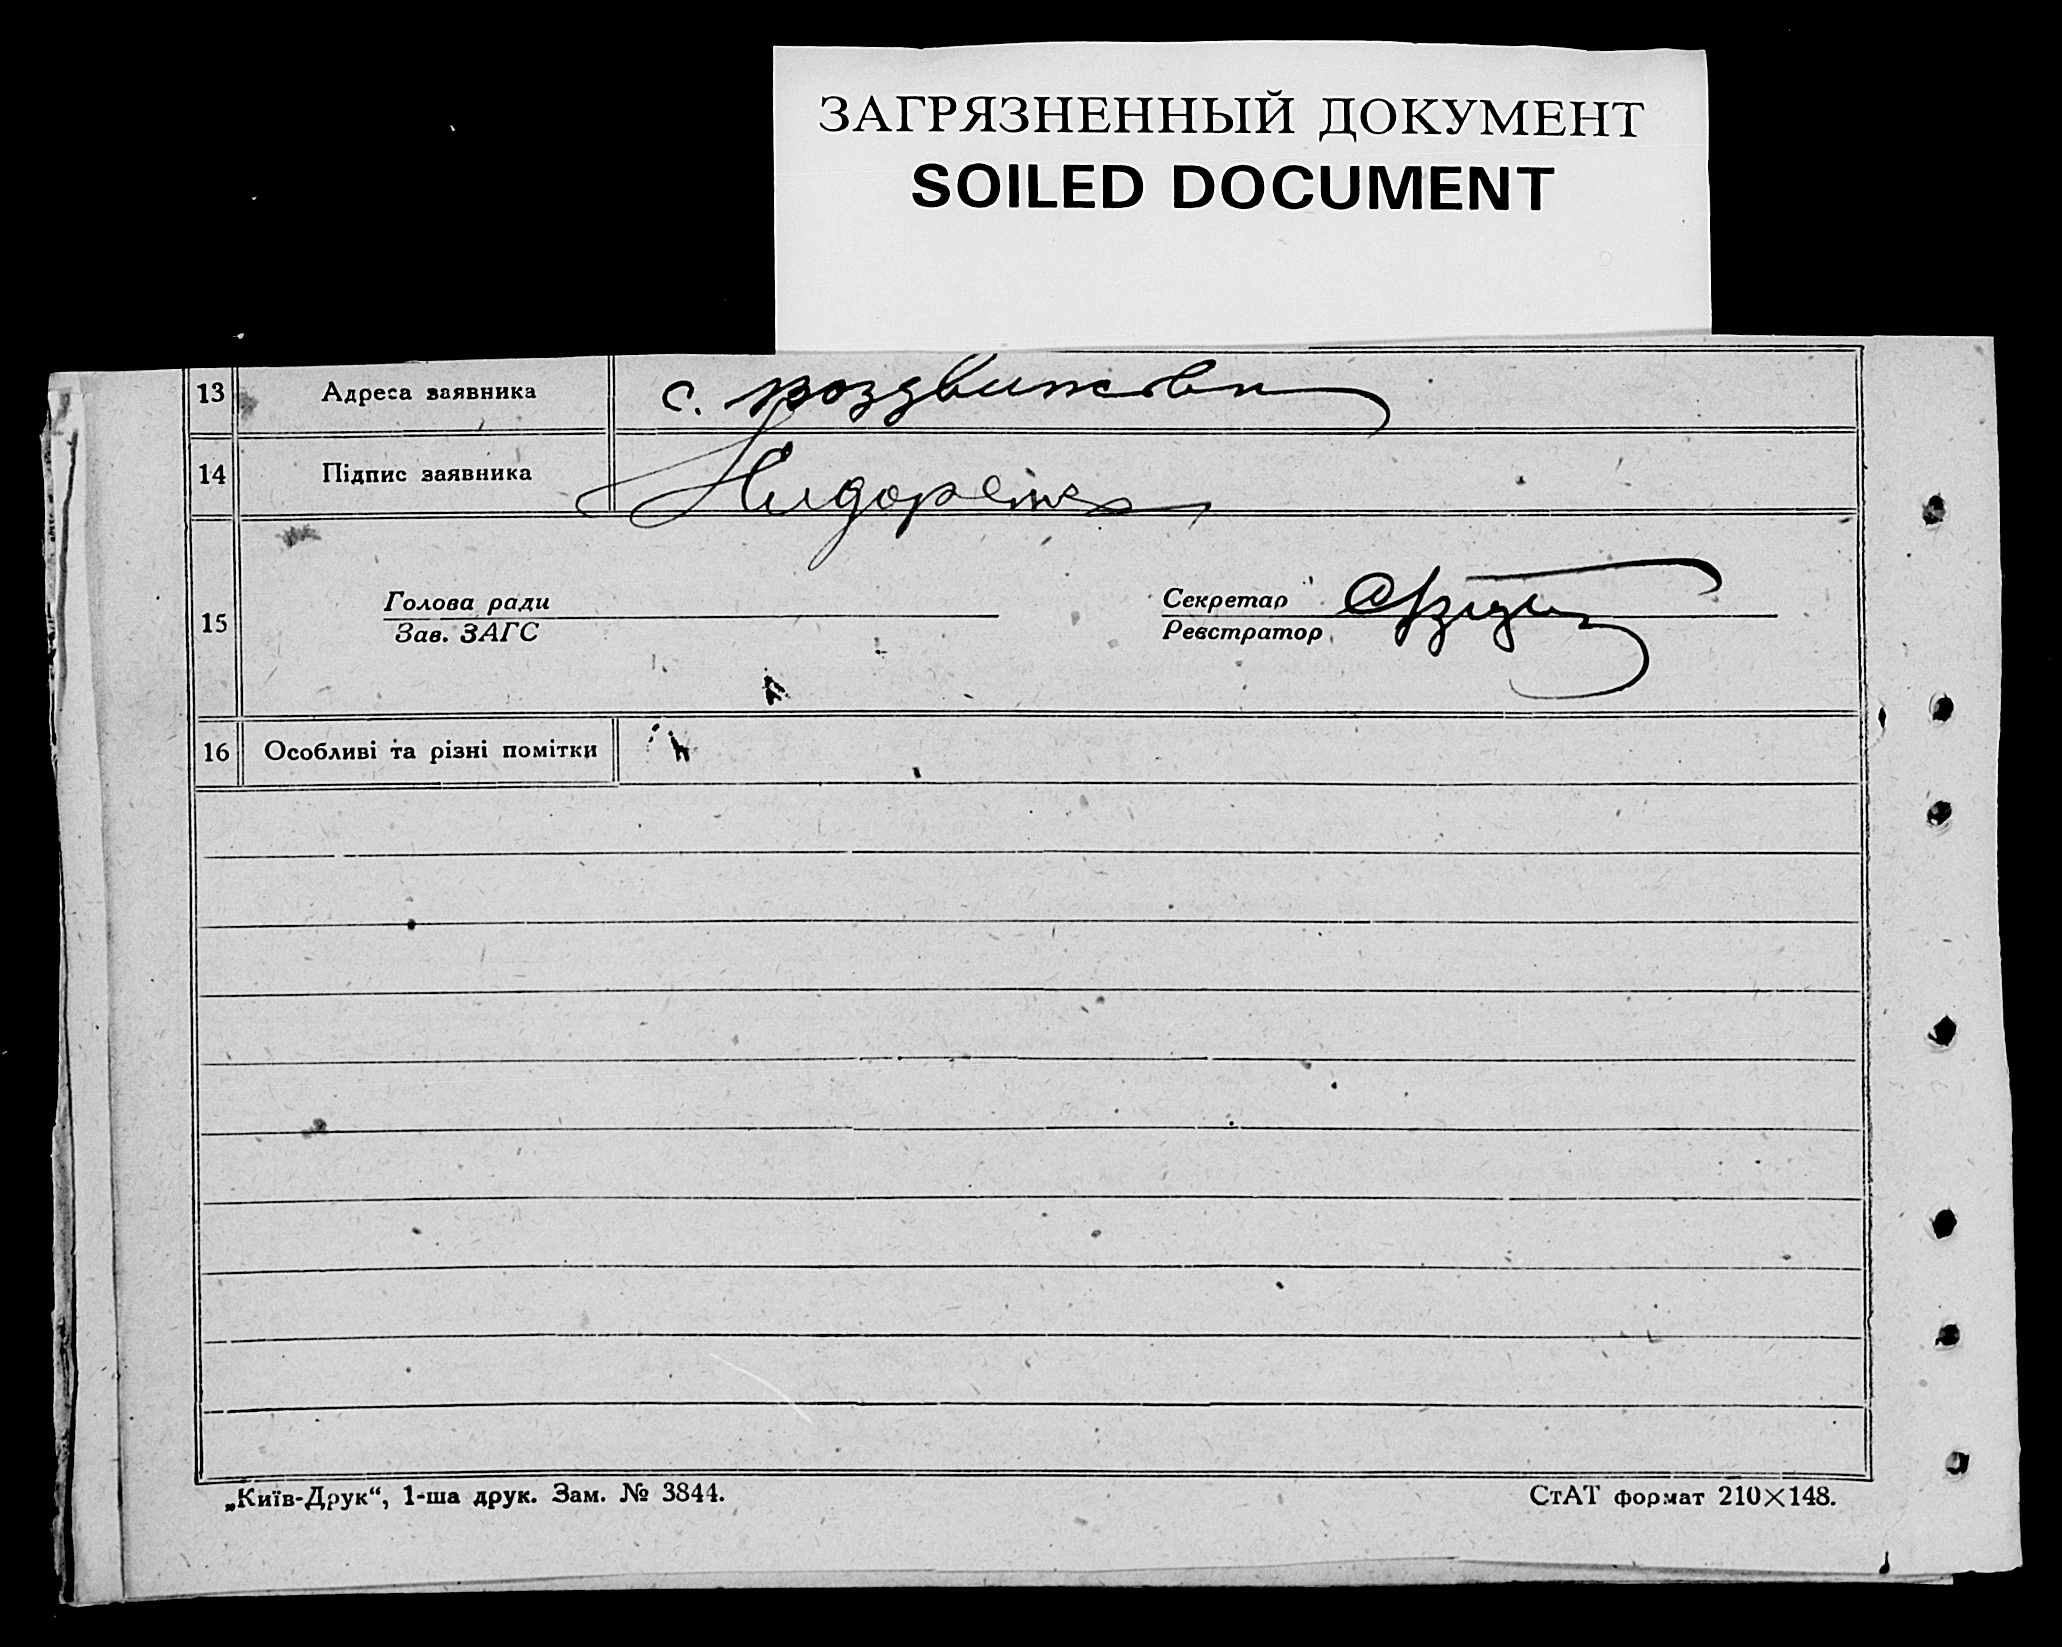 ЗАГРЯЗНЕННЫЙ ДОКУМЕНТ
SOILED DOCUMENT
13 Адреса заявника с. воздвижовка
14 Підпис заявника
15
Голова ради
Зав. ЗАГС
Секретар
Реєстратор
16 Особливі та різні помітки
„Київ-Друк“, 1-ша друк. Зам. № 3844.
СтАТ формат 210×148.